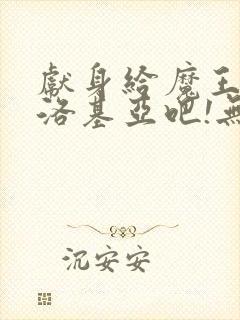 獻身給魔王
洛基亞吧!無
沉安安